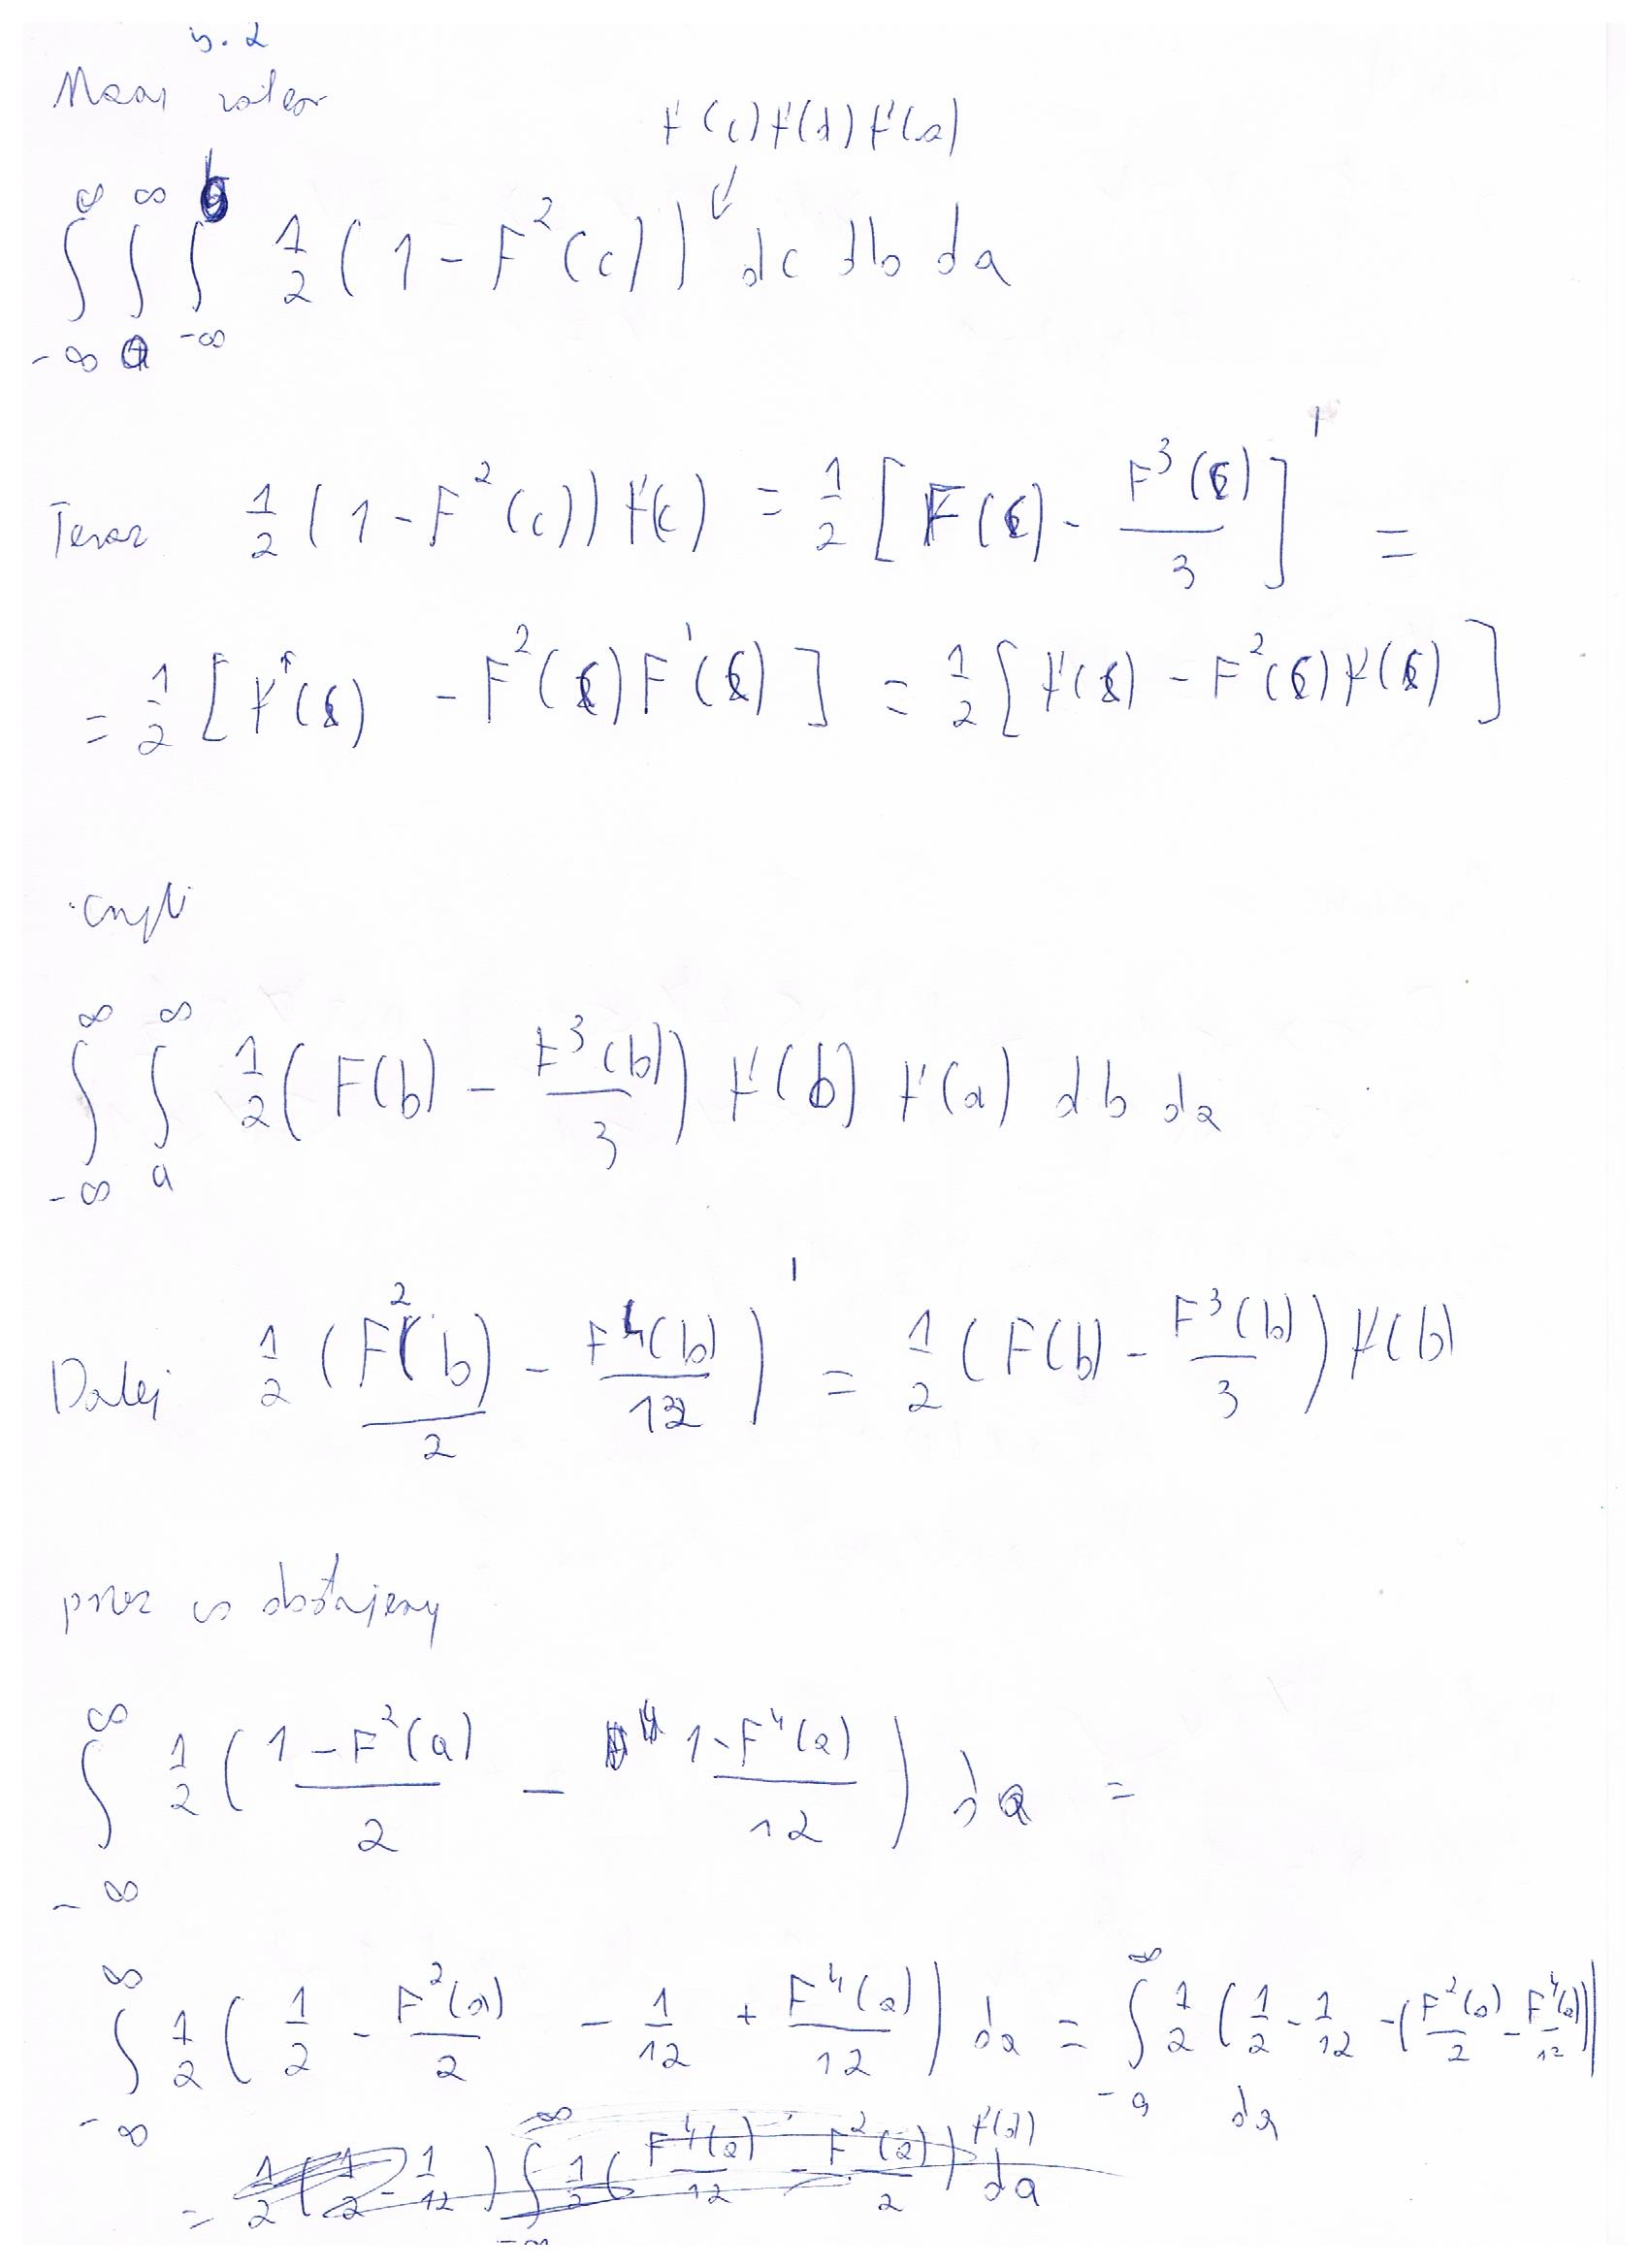 s. 2
Mamy zatem
f(c) f(b) f(a)
∞ ∞ b
∫ ∫ ∫ 1/2 (1 - F²(c)) dc db da
-∞ a -∞
Teraz 1/2 (1 - F²(c)) f(c) = 1/2 [F(c) - F³(c)/3]' =
= 1/2 [F'(c) - F²(c) F'(c)] = 1/2 [f(c) - F²(c) f(c)]
czyli
∞ ∞
∫ ∫ 1/2 (F(b) - F³(b)/3) f(b) f(a) db da
-∞ a
Dalej 1/2 (F²(b)/2 - F⁴(b)/12)' = 1/2 (F(b) - F³(b)/3) f(b)
przez co dostajemy
∞
∫ 1/2 ((1 - F²(a))/2 - (1 - F⁴(a))/12) da =
-∞
∞ ∞
∫ 1/2 (1/2 - F²(a)/2 - 1/12 + F⁴(a)/12) da = ∫ 1/2 (1/2 - 1/12 - (F²(a)/2 - F⁴(a)/12)) da
-∞ -∞
= 1/2 (1/2 - 1/12) ∫ 1/2 (F⁴(a)/12 - F²(a)/2) f(a) da